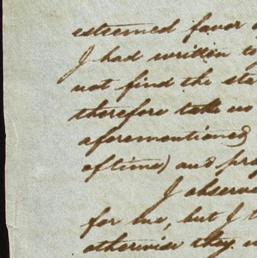 esteemed favor
I had written to
not find the sta
therefore take us
aforementioned
aftime) and pr
I observe
for me, but I
otherwise they